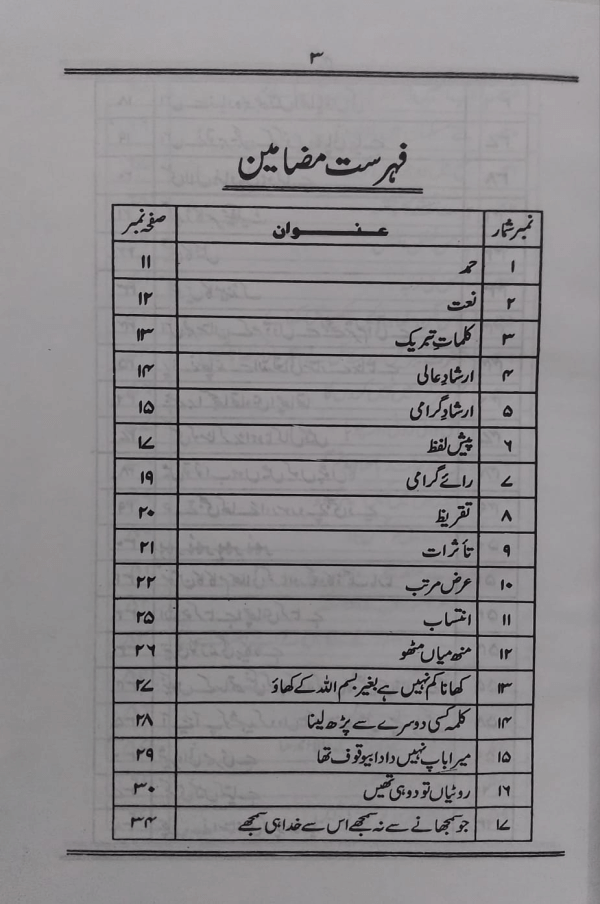 ۳
فہرست مضامین
نمبر شمار عنوان صفحہ نمبر
۱ حمد ۱۱
۲ نعت ۱۲
۳ کلماتِ تبریک ۱۳
۴ ارشادِ عالی ۱۴
۵ ارشادِ گرامی ۱۵
۶ پیش لفظ ۱۷
۷ رائے گرامی ۱۹
۸ تقریظ ۲۰
۹ تأثرات ۲۱
۱۰ عرض مرتب ۲۲
۱۱ انتساب ۲۵
۱۲ منھ میاں مٹھو ۲۶
۱۳ کھانا کم نہیں ہے بغیر بسم اللہ کے کھاؤ ۲۷
۱۴ کلمہ کسی دوسرے سے پڑھ لینا ۲۸
۱۵ میرا باپ نہیں دادا بیوقوف تھا ۲۹
۱۶ روٹیاں تو دو ہی تھیں ۳۰
۱۷ جو سمجھانے سے نہ سمجھے اس سے خدا ہی سمجھے ۳۴